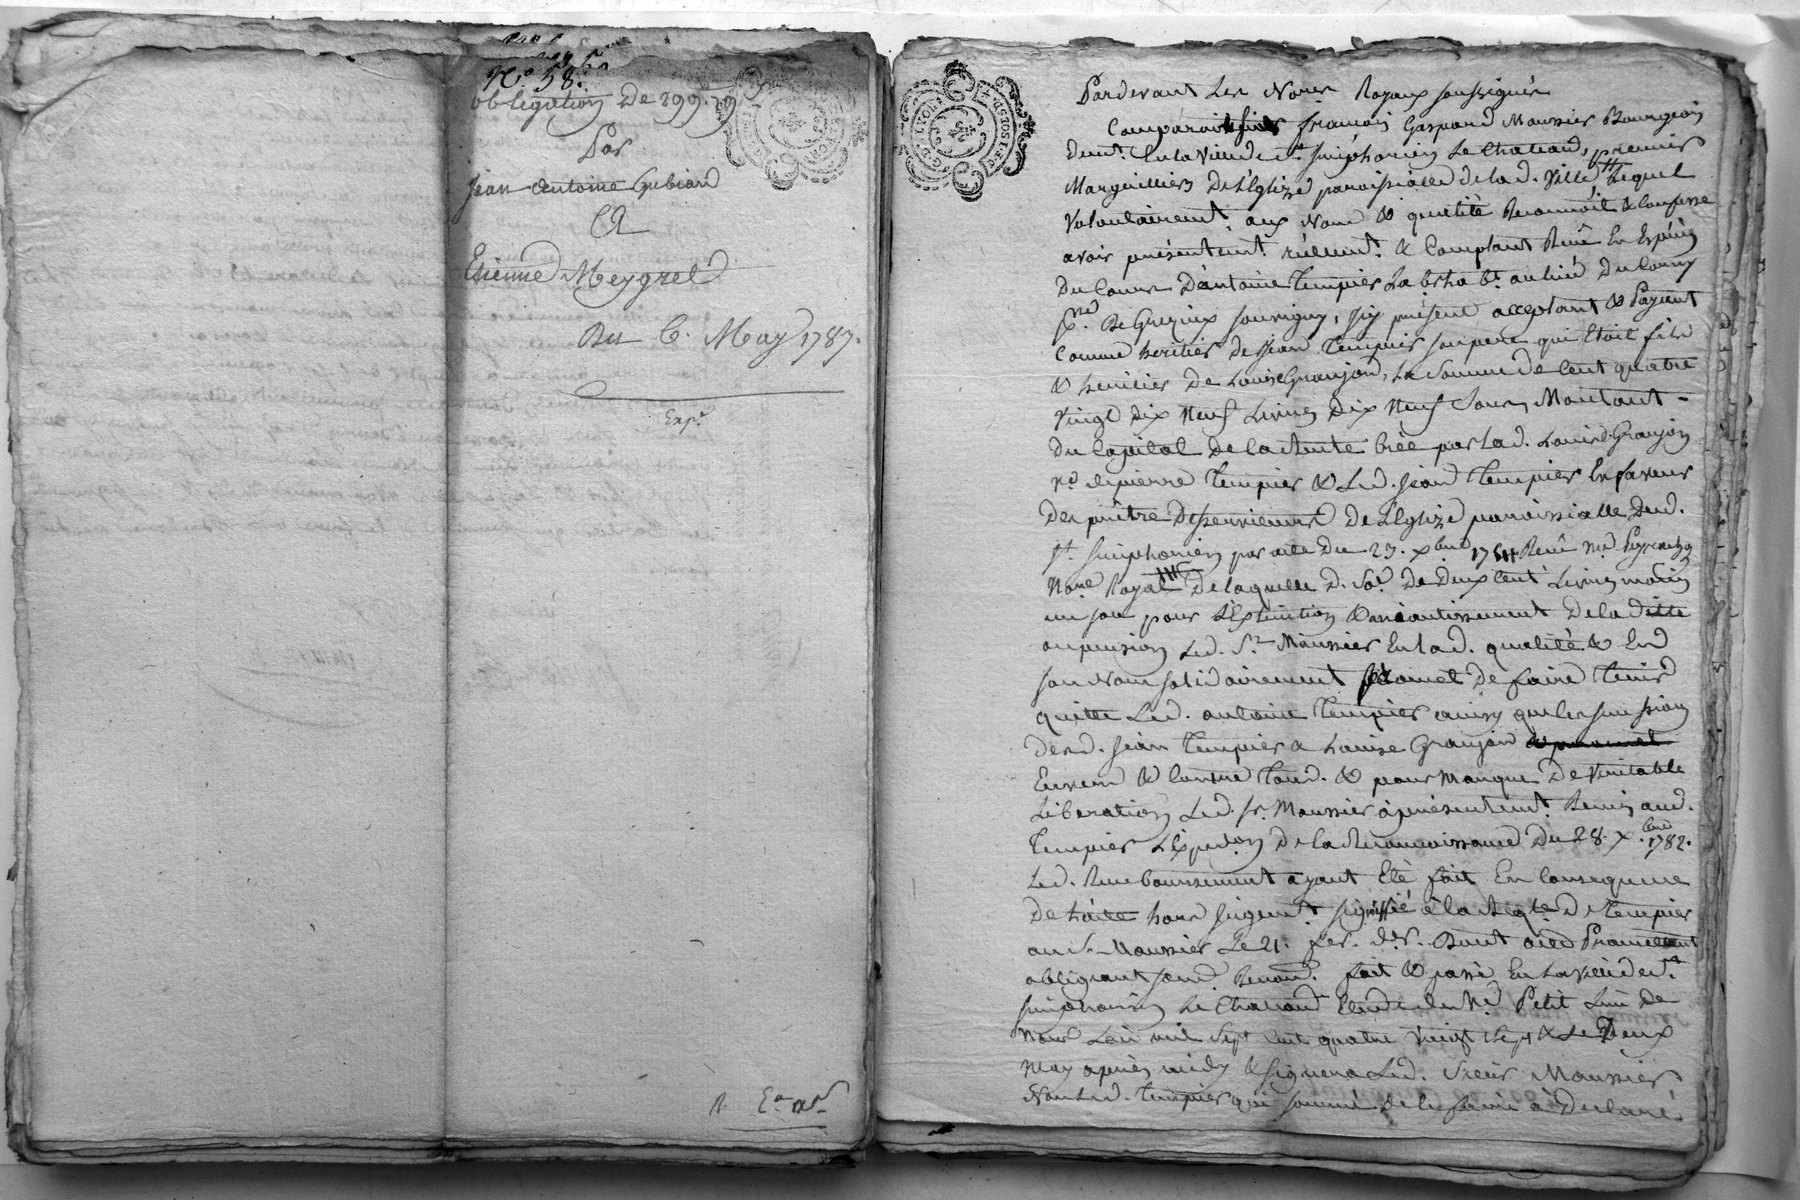 N.° 58.
obligation De 299.lt 19.s
Par
Jean Antoine Gubian
A
Etienne Meygret
Du 6. May 1787.
Exp.e
Pardevant Les No.res Royaux soussignés
Comparoit françois Gaspard Mousnier Bourgeois
demt. En la Ville de st. simphorien Le Chateau, premier
Marguilliers De L'Eglize paroissialle de lad. Ville Lequel
Volontairemt. aux Noms & qualité Reconnoit & Confesse
avoir présentemt. réellemt. & Comptant Reçu En Espéces
Du Cours D'antoine Tempier Lab. ha bt. au lieu Du
psse. De Grezieux souvigny, icy présent acceptant & Payant
Comme heritier de Jean Tempier son pere qui Etoit fils
& heritier De Louise Granjon, La Somme de Cent quatre
Vingt Dix Neuf Livres Dix Neuf Sous, Montant
Du Capital De la Rente Créé par lad. Louise Granjon
ve. de pierre Tempier & Led. Jean Tempier En faveur
Des prêtres Desserviteurs De L'Eglize paroissialle Dud.
st. simphorien par acte Du 23. xbre 1754 Reçu Me
Nore. Royal De laquelle D. Sce. De Deux Cent Livres moins
un sou pour L'Extinction & aneantissement De la ditte
pension Led. Sr. Mousnier En lad. qualité & En
son Nom solidairement promet De faire Tenir
quitte Led. antoine Tempier ainsy que les succession
desd. Jean Tempier & Louise Granjon
Envers & Contre Tous. & pour Marque De Veritable
Liberation Led. sr. Mousnier à présentemt. Remis aud.
Tempier L'Expedon De la Reconnoissance Du 28. Xbre 1782.
Led. Remboursement ayant Eté fait En Consequence
De l'acte hors Jugemt. signiffié à la Reqte. De Tempier
aud. Mousnier Le 21. fer. der. Dont acte Promettant
obligeant soumt. Renont. fait & passé En la Ville de st.
simphorien Le Chateau Etude de Me. Petit L'un De
Nous L'an mil sept cent quatre vingt sept & Le Deux
May après midy & signera Led. Sieur Mousnier
Non Led. Tempier qui sommé de le faire à Declaré